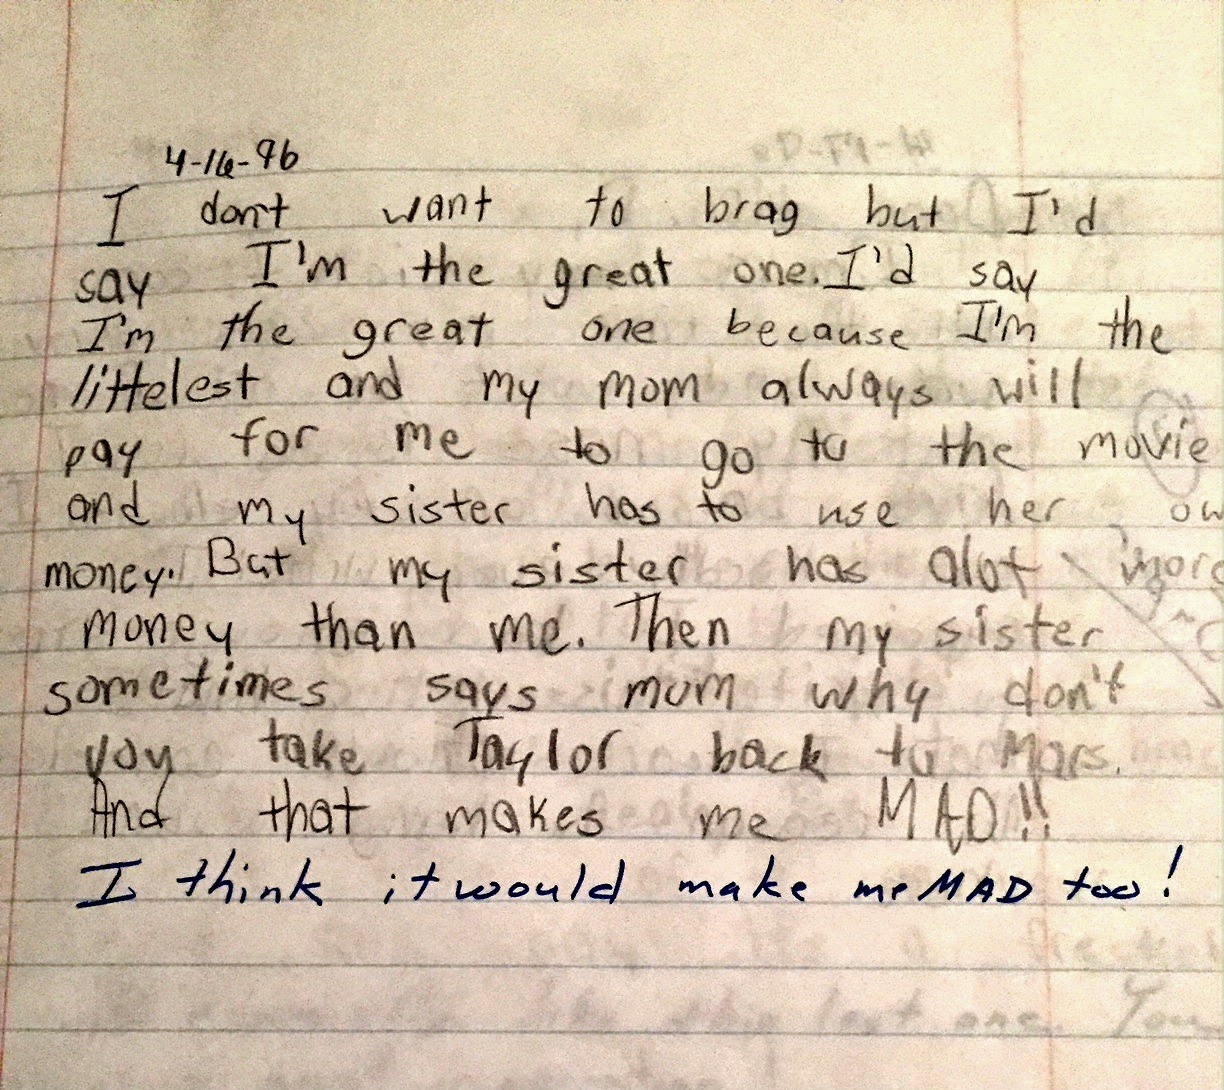 4-16-96
I don't want to brag but I'd
say I'm the great one. I'd say
I'm the great one because I'm the
littelest and my mom always will
pay for me to go to the movie
and my sister has to use her ow
money. But my sister has alot more
money than me. Then my sister
sometimes says mum why don't
you take Taylor back to Mars.
And that makes me MAD!!
I think it would make me MAD too!